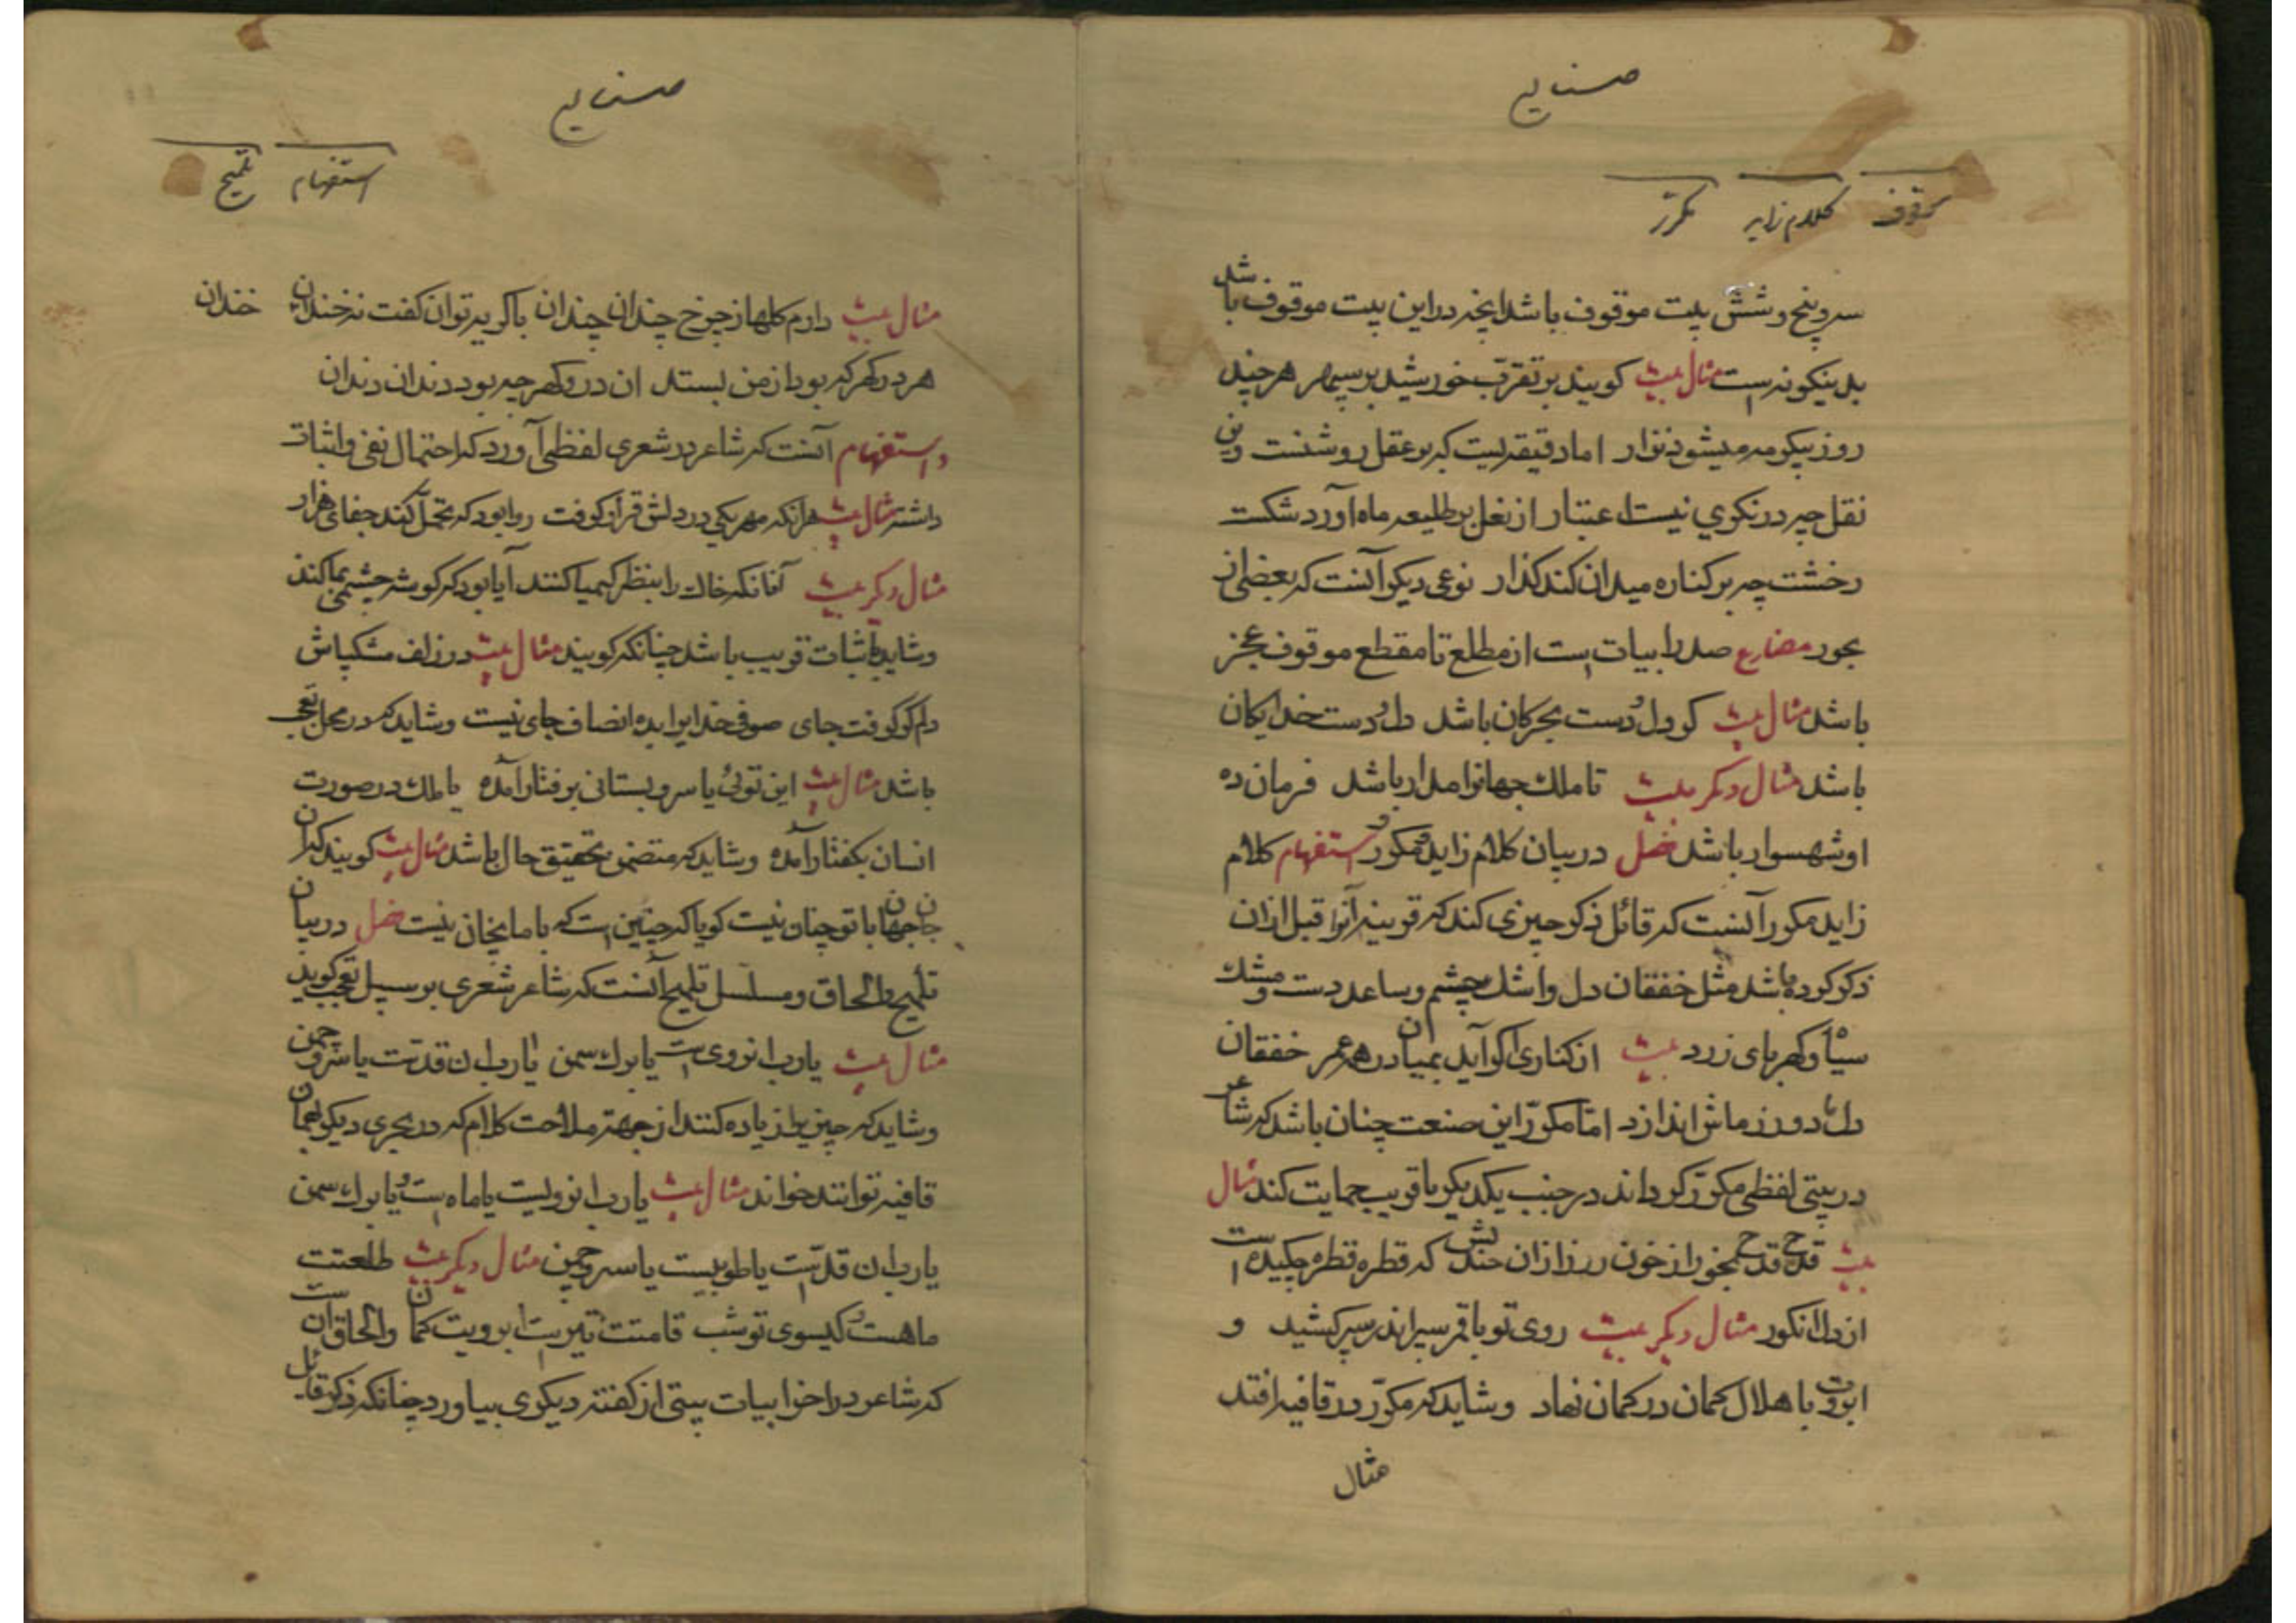 صنایع
موقوف کلام زاید مکرر
سر و پنج و شش بیت موقوف باشد اینچه در این بیت موقوف باشد
بدینکونه است مثال بیت کویند بر تقرب خورشید بر سپهر هر چند
روز پیکر مه میشود نزار اما دقیقه ایست که بر عقل روشنست وین
نقل جبر در نکوی نیست اعتبار از نعل بر طلیعه ماه آورد شکست
رخشت چه بر کناره میدان کند کذار نوعی دیکر آنست که بعضی از
بحور مضارع صدر ابیات است از مطلع تا مقطع موقوف عجز
باشد مثال بیت کر دل و دست بحر کان باشد دل و دست خدایکان
باشد مثال دیکر بیت تا ملک جهانرا مدار باشد فرمان ده
او شهسوار باشد فصل در بیان کلام زاید و مکرر و استفهام کلام
زاید مکرر آنست که قائل ذکر چیزی کند که قرینه آنرا قبل از ان
ذکر کرده باشد مثل خفقان دل و اشک چشم و ساعد دست و مشک
سیاه و کهربای زرد بیت از کناری اکر آید بمیان در همه عمر خفقان
دل دو رزماش اندازد اما مکرر این صنعت چنان باشد که شاعر
در بیتی لفظی مکرر کرداند در جنب یکدیکر یا قریب حمایت کند مثال
بیت قدح قدح بخور از خون رز از ان خندش که قطره قطره چکیده است
از دل انکور مثال دیکر بیت روی تو با قمر سپر اندر سپر کشید و
ابروت با هلال کمان در کمان نهاد و شاید که مکرر در قافیه افتد
مثال
صنایع
استفهام تلمیح
مثال بیت دارم کلها از چرخ چندان چندان با کریه توان کفت نه خندان خندان
هر در کهر که بود از من بستد ان در و کهر چه بود دندان دندان
و استفهام آنست که شاعر در شعری لفظی آورد که احتمال نفی و اثبات
داشته مثال بیت هر انکه مهر یکی در دلش قرار کرفت روا بود که تحمل کند جفای هزار
مثال دیکر بیت آنانکه خاک را بنظر کیمیا کنند آیا بود که کوشه چشمی بما کنند
و شاید باثبات قریب باشد چنانکه کویند مثال بیت در زلف مشکپاش
دلم کو کرفت جای صوفی خدایرا بده انصاف جای نیست و شاید که در محل تعجب
باشد مثال بیت این توئی یا سرو بستانی برفتار آمده یا ملک در صورت
انسان بکفتار آمده و شاید که متضمن تحقیق حال باشد مثال بیت کویند که ان
جان جهان با تو چنان نیست کویا که چنین است که با ما بچنان نیست فصل در بیان
تلمیح و الحاق و مسلسل تلمیح آنست که شاعر شعری بر سبیل تعجب کوید
مثال بیت یا رب ان روی است یا برک سمن یا رب ان قدست یا سرو چمن
و شاید که چیز یرا زیاده کنند از جهته ملاحت کلام که در بحری دیکر بهمان
قافیه توانند خواند مثال بیت یا رب ان رویست یا ماه است و یا برک سمن
یا رب ان قد است یا طوبیست یا سرو چمن مثال دیکر بیت طلعتت
ماهست و کیسوی تو شب قامتت تیر است ابرویت کمان و الحاق انست
که شاعر در اخر ابیات بیتی از کفته دیکری بیاورد چنانکه ذکر قائل